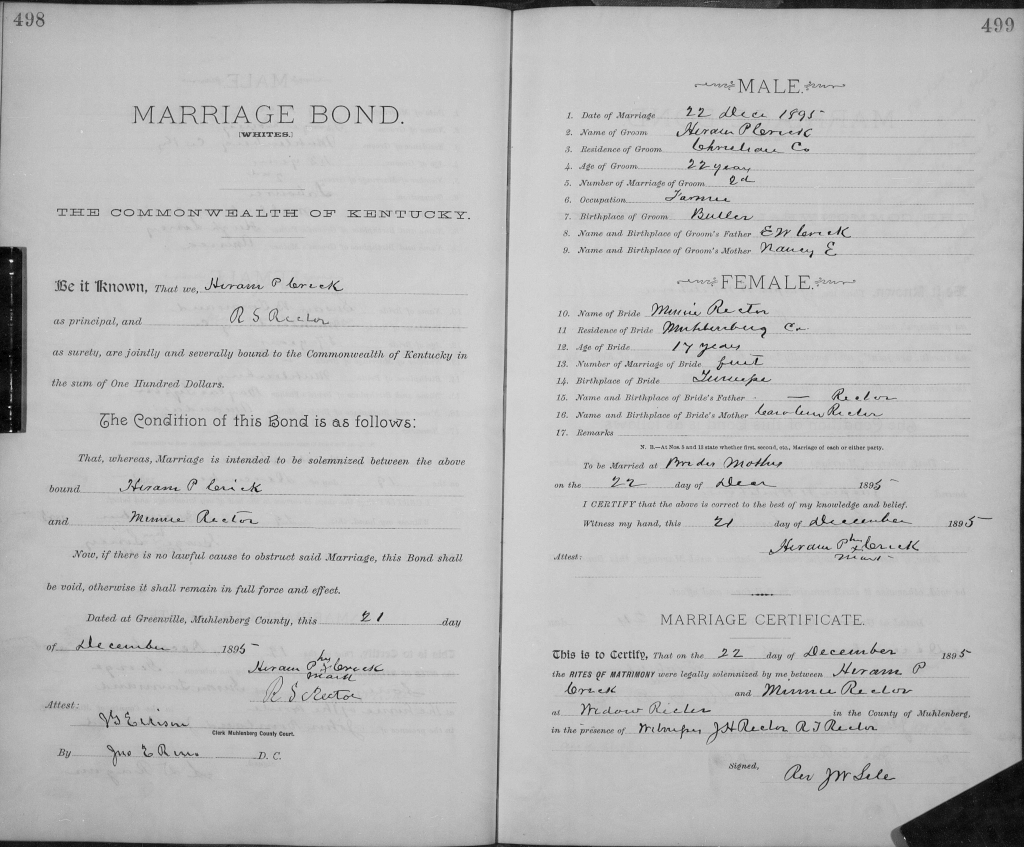 498
MARRIAGE BOND.
[WHITES.]
THE COMMONWEALTH OF KENTUCKY.
Be it Known, That we, Hiram P Crick
as principal, and R S Rector
as surety, are jointly and severally bound to the Commonwealth of Kentucky in
the sum of One Hundred Dollars.
The Condition of this Bond is as follows:
That, whereas, Marriage is intended to be solemnized between the above
bound Hiram P Crick
and Minnie Rector
Now, if there is no lawful cause to obstruct said Marriage, this Bond shall
be void, otherwise it shall remain in full force and effect.
Dated at Greenville, Muhlenberg County, this 21 day
of December 1895
his
Hiram P x Crick
mark
R S Rector
Attest:
Clerk Muhlenberg County Court.
By Jno E D. C.
499
MALE.
1. Date of Marriage 22 Dec 1895
2. Name of Groom Hiram P Crick
3. Residence of Groom Christian Co
4. Age of Groom 22 years
5. Number of Marriage of Groom 2d
6. Occupation Farmer
7. Birthplace of Groom Butler
8. Name and Birthplace of Groom's Father E W Crick
9. Name and Birthplace of Groom's Mother Nancy E
FEMALE.
10. Name of Bride Minnie Rector
11 Residence of Bride Muhlenburg Co.
12. Age of Bride 17 years
13. Number of Marriage of Bride first
14. Birthplace of Bride
15. Name and Birthplace of Bride's Father — Rector
16. Name and Birthplace of Bride's Mother Rector
17. Remarks
N. B.—At Nos 5 and 13 state whether first, second, etc., Marriage of each or either party.
To be Married at Brides Mothers
on the 22 day of Decr 1895
I CERTIFY that the above is correct to the best of my knowledge and belief.
Witness my hand, this 21 day of December 1895
his
Hiram P x Crick
mark
Attest:
MARRIAGE CERTIFICATE.
This is to Certify, That on the 22 day of December 1895
the RITES OF MATRIMONY were legally solemnized by me between Hiram P
Crick and Minnie Rector
at Widow in the County of Muhlenberg,
in the presence of Witnesses J H Rector R T Rector
Signed,
Rev J W